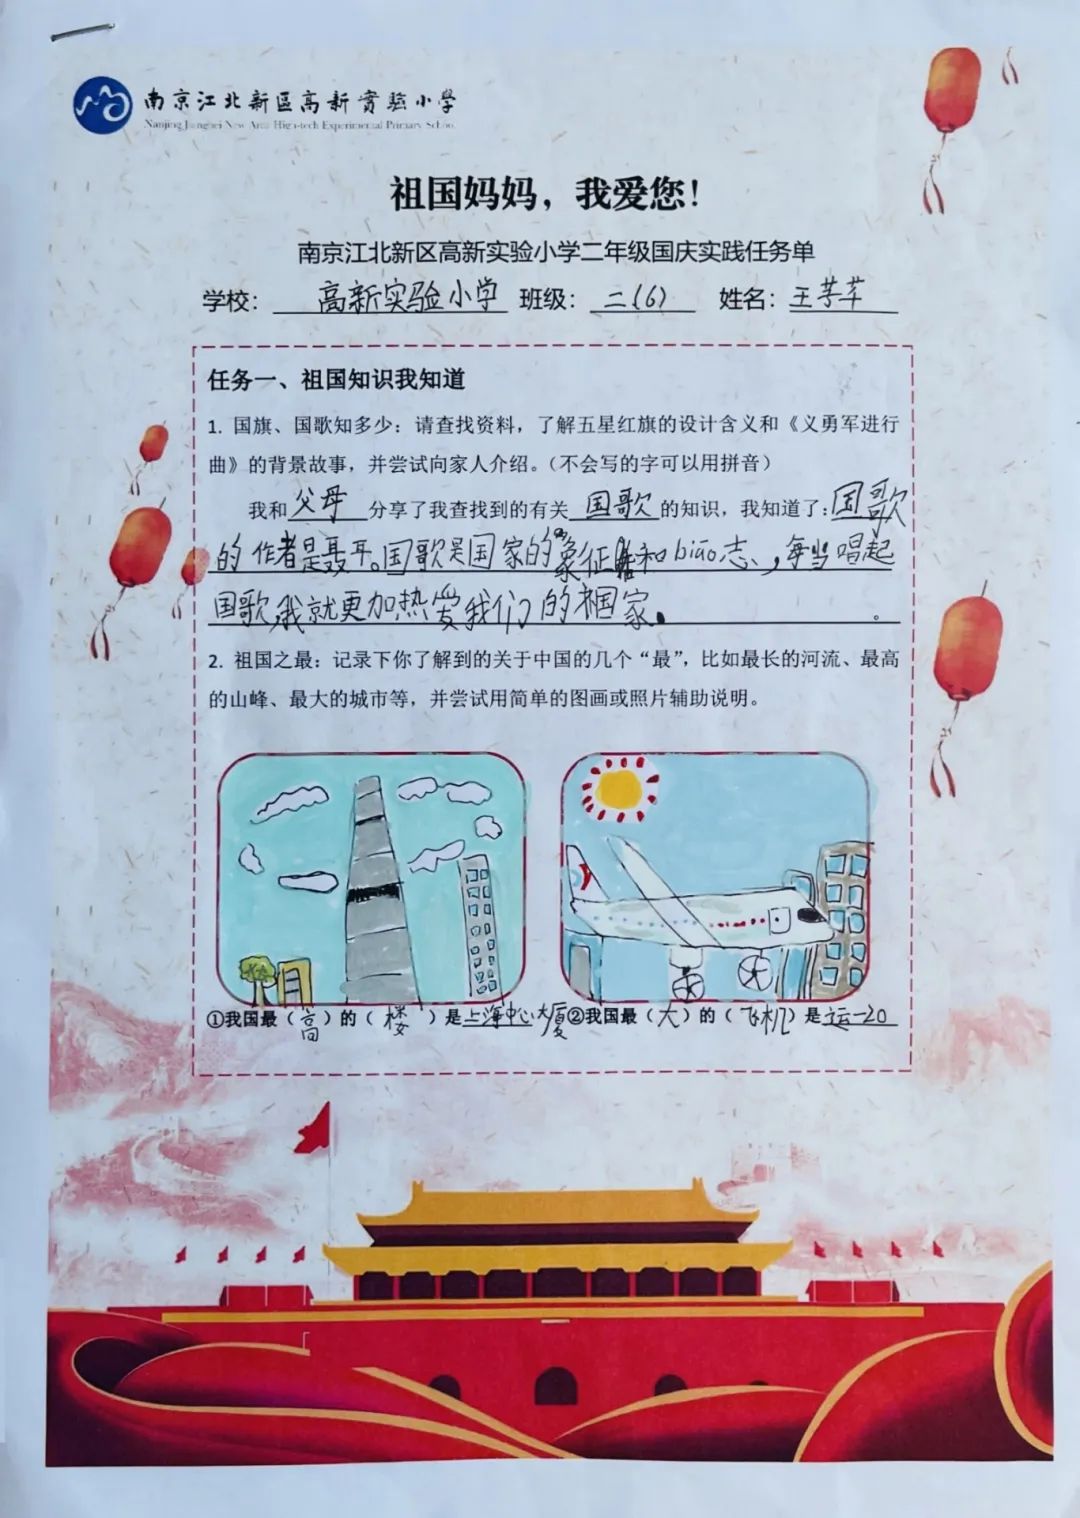 南京江北新區高新實驗小學
Nanjing Jiangbei New Area High-tech Experimental Primary School
祖国妈妈，我爱您！
南京江北新区高新实验小学二年级国庆实践任务单
学校：高新实验小学 班级：二(6) 姓名：王
任务一、祖国知识我知道
1. 国旗、国歌知多少：请查找资料，了解五星红旗的设计含义和《义勇军进行
曲》的背景故事，并尝试向家人介绍。（不会写的字可以用拼音）
我和父母分享了我查找到的有关国歌的知识，我知道了：国歌
的作者是聂耳。国歌是国家的象征和biāo志，每当唱起
国歌，我就更加热爱我们的祖国家。。
2. 祖国之最：记录下你了解到的关于中国的几个“最”，比如最长的河流、最高
的山峰、最大的城市等，并尝试用简单的图画或照片辅助说明。
①我国最（高）的（楼）是上海中心大厦②我国最（大）的（飞机）是运一20